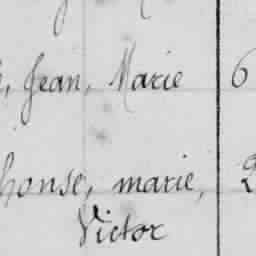 , Jean, Marie 6
honse, marie, 2
Victor